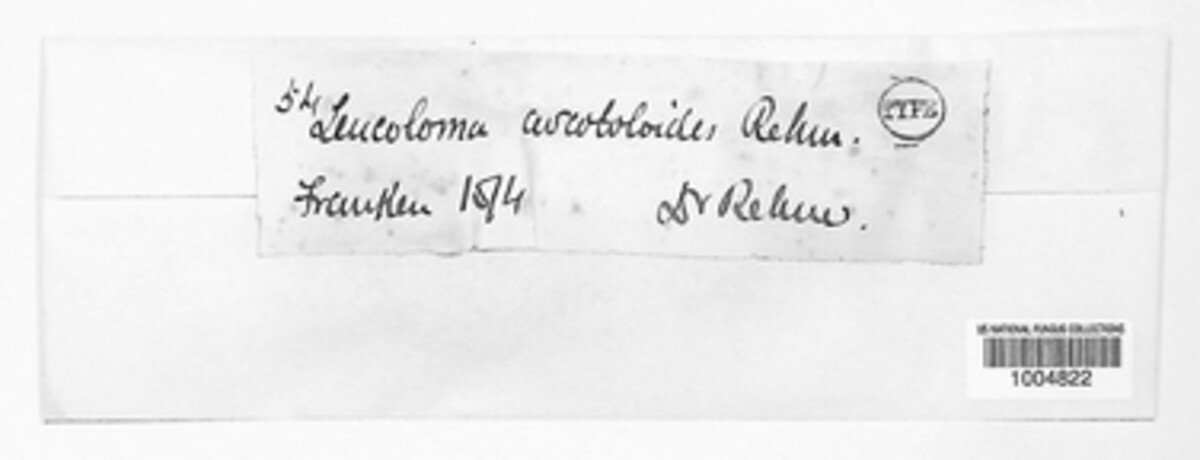 54 Leucoloma ascoboloides Rehm. TYPE
Franken 1874 Dr Rehm.
US NATIONAL FUNGUS COLLECTIONS
1004822